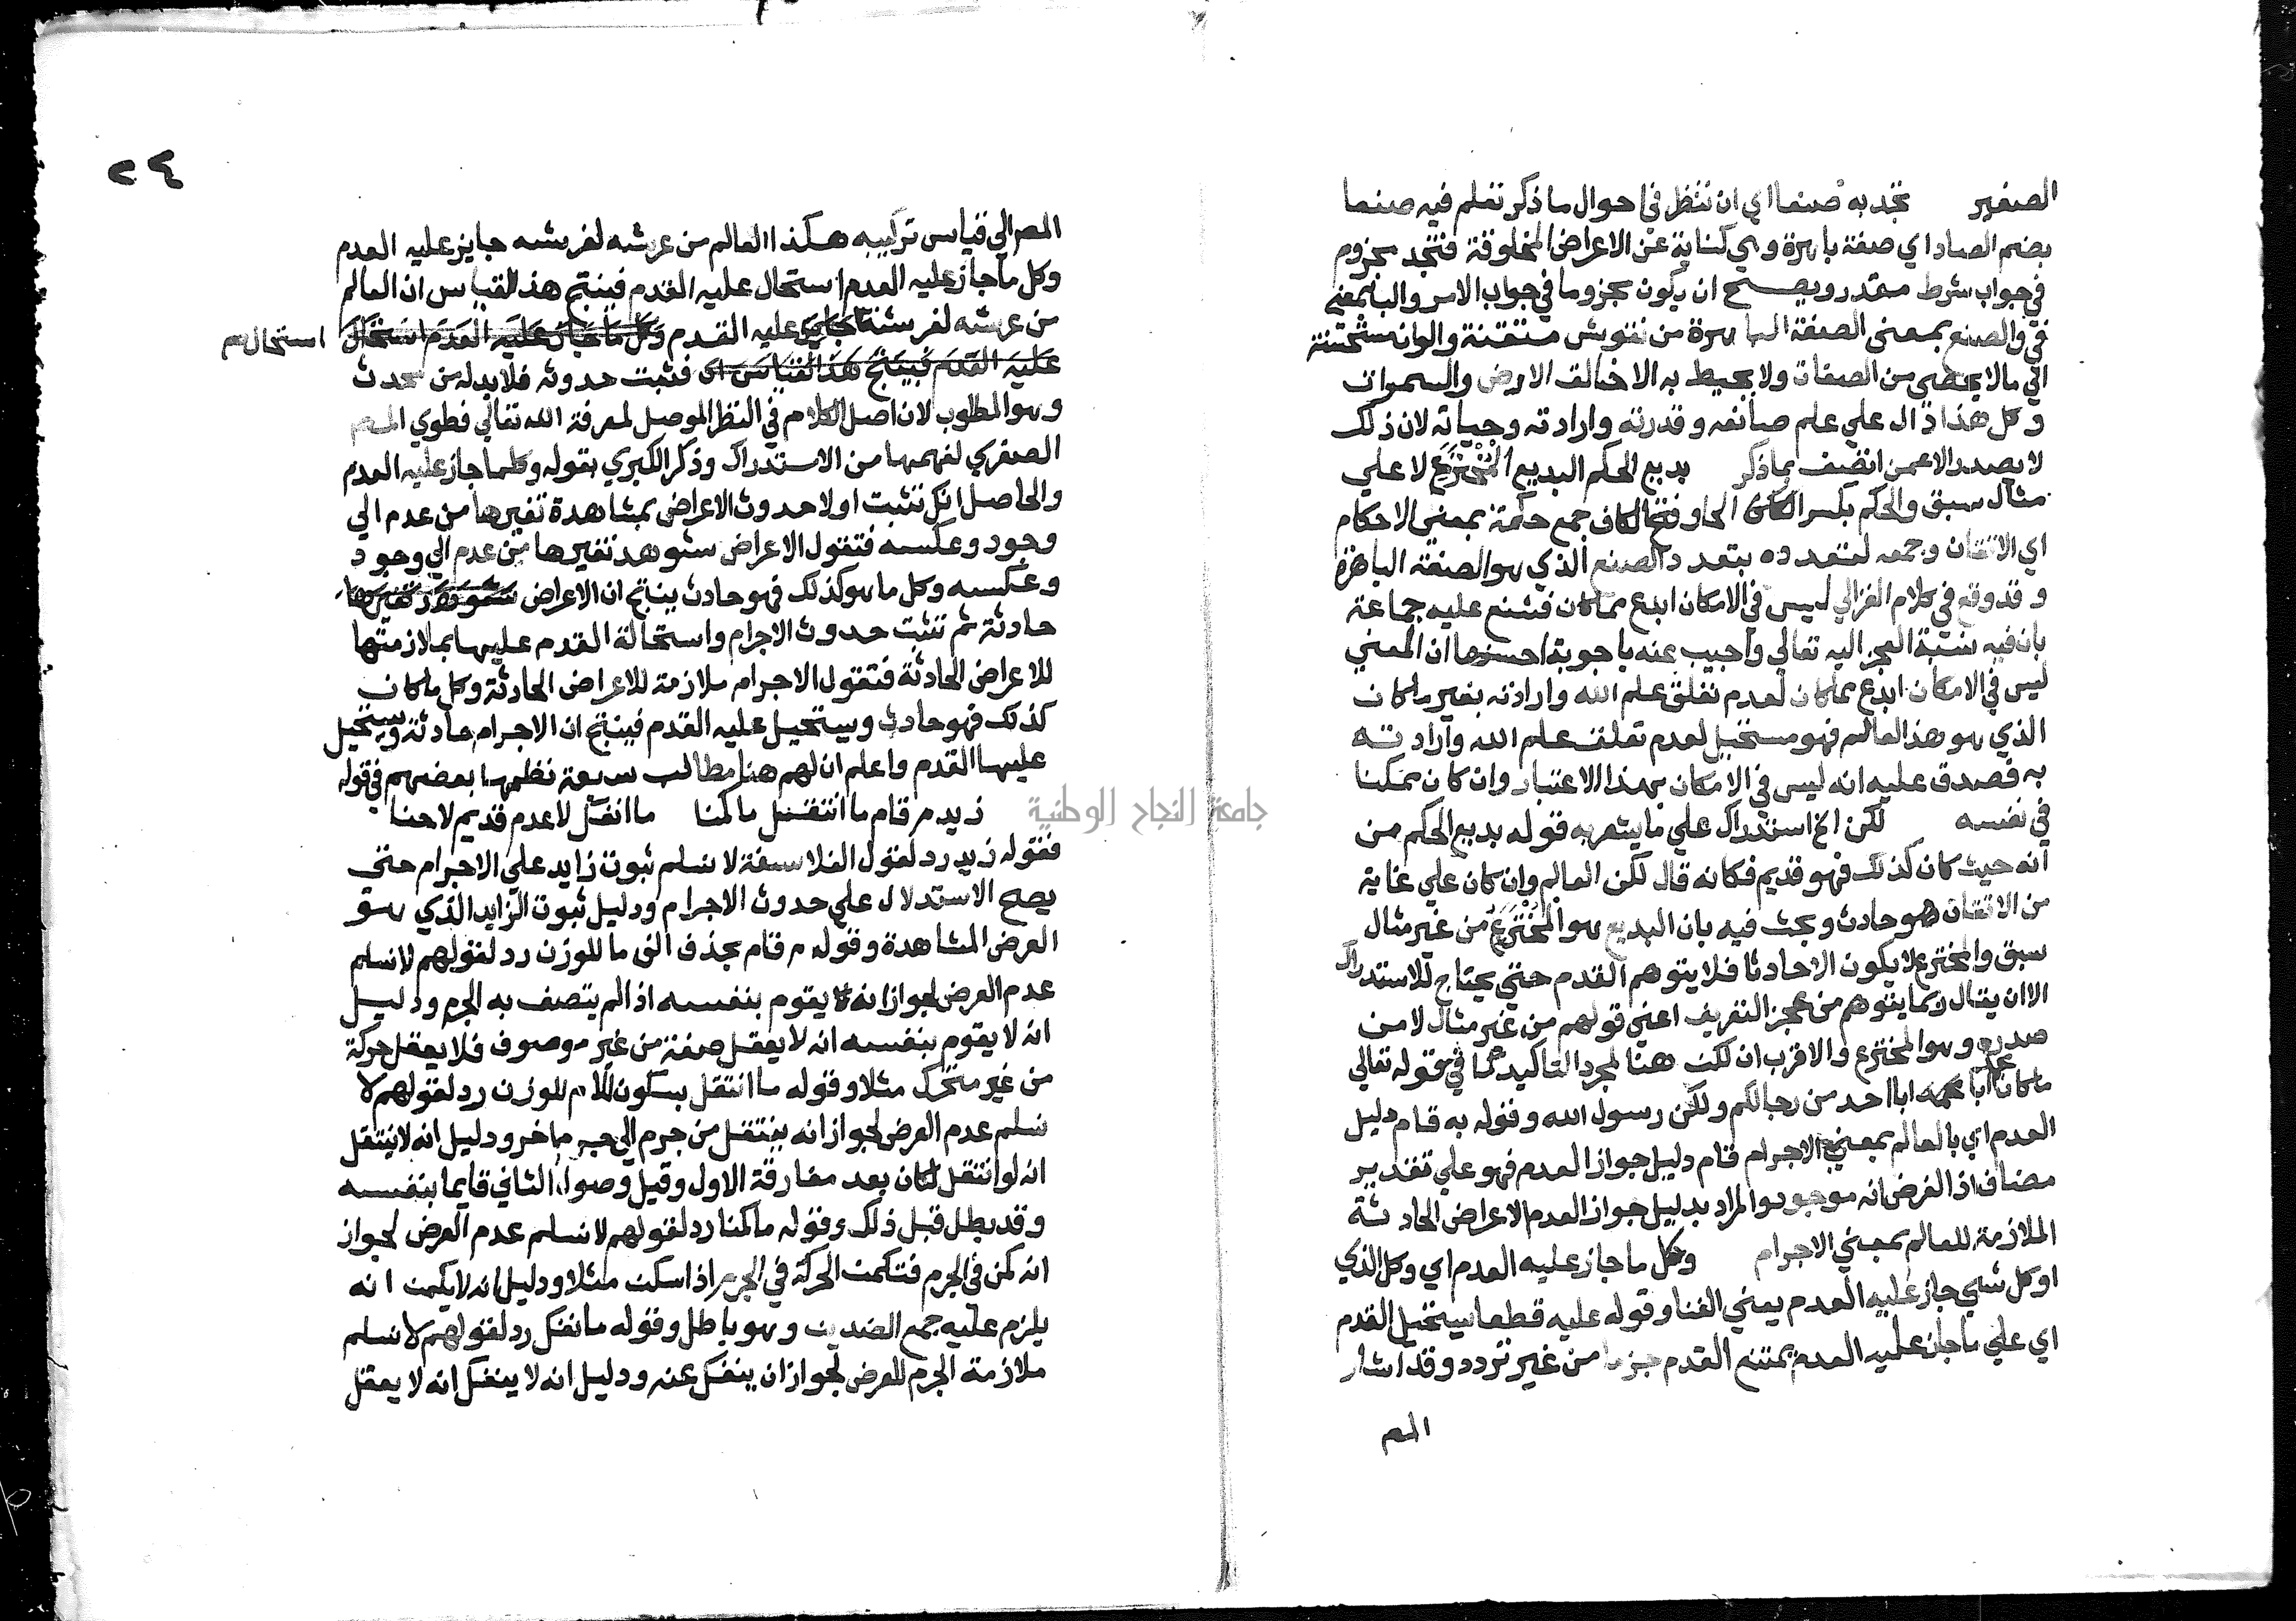 الصغير تجد به صنعا اي ان تنظر في احوال ما ذكر تعلم فيه صنعا
بضم الصاد اي صنعة باهرة وهي كناية عن الاعراض المخلوقة فتجد مجزوم
في جواب شرط مقدر ويصح ان يكون مجزوما في جواب الامر والبا بمعني
في والصنع بمعني الصنعة الباهرة من نقوش متقنة والوان مستحسنة
الي ما لا يحصي من الصفات ولا يحيط به الا خالق الارض والسموات
وكل هذا دال علي علم صانعه وقدرته وارادته وحياته لان ذلك
لا يصدر الا عمن اتصف بما ذكر بديع الحكم البديع المخترع لا علي
مثال سبق والحكم بكسر الحا وفتح الكاف جمع حكمة بمعني الاحكام
اي الاتقان وجمعه لتعدده بتعدد الصنع الذي هو الصنعة الباهرة
وقد وقع في كلام الغزالي ليس في الامكان ابدع مما كان فشنع عليه جماعة
بان فيه نسبة العجز اليه تعالي واجيب عنه باجوبة احسنها ان المعني
ليس في الامكان ابدع مما كان لعدم تعلق علم الله وارادته بغير ما كان
الذي هو هذا العالم فهو مستحيل لعدم تعلق علم الله وارادته
به فصدق عليه انه ليس في الامكان بهذا الاعتبار وان كان ممكنا
في نفسه لكن الخ استدراك علي ما يشعر به قوله بديع الحكم من
انه حيث كان كذلك فهو قديم فكانه قال لكن العالم وان كان علي غاية
من الاتقان هو حادث وبحث فيه بان البديع هو المخترع من غير مثال
سبق والمخترع لا يكون الا حادثا فلا يتوهم القدم حتي يحتاج للاستدراك
الا ان يقال ربما يتوهم من عجز التعريف اعني قولهم من غير مثال لا من
صدره وهو المخترع والاقرب ان لكن هنا لمجرد التاكيد كما في قوله تعالي
ما كان محمد ابا احد من رجالكم ولكن رسول الله وقوله به قام دليل
العدم اي بالعالم بمعني الاجرام قام دليل جواز العدم فهو علي تقدير
مضاف اذ الفرض انه موجود والمراد بدليل جواز العدم الاعراض الحادثة
الملازمة للعالم بمعني الاجرام وكل ما جاز عليه العدم اي وكل الذي
او كل شي جاز عليه العدم يعني الفنا وقوله عليه قطعا يستحيل القدم
اي علي ما جاز عليه العدم يمتنع القدم جزما من غير تردد وقد اشار
المص
٢٤
المص الي قياس تركيبه هكذا العالم من عرشه لفرشه جايز عليه العدم
وكل ما جاز عليه العدم استحال عليه القدم فينتج هذا القياس ان العالم
من عرشه لفرشه جايز عليه القدم وكل ما جاز عليه العدم استحال استحال
عليه القدم فينتج هذا القياس ان فثبت حدوثه فلا بد له من محدث
وهو المطلوب لان اصل الكلام في النظر الموصل لمعرفة الله تعالي فطوي المص
الصغري لفهمها من الاستدراك وذكر الكبري بقوله وكلما جاز عليه العدم
والحاصل انك تثبت اولا حدوث الاعراض بمشاهدة تغيرها من عدم الي
وجود وعكسه فتقول الاعراض شوهد تغيرها من عدم الي وجود
وعكسه وكل ما هو كذلك فهو حادث ينتج ان الاعراض شوهد تغيرها
حادثة ثم تثبت حدوث الاجرام واستحالة القدم عليها بملازمتها
للاعراض الحادثة فتقول الاجرام ملازمة للاعراض الحادثة وكل ما كان
كذلك فهو حادث ويستحيل عليه القدم فينتج ان الاجرام حادثة ويستحيل
عليها القدم واعلم ان لهم هنا مطالب سبعة نظمها بعضهم في قوله
زيد م قام ما انتقل ما كمنا ما انفك لا عدم قديم لا حنا
فقوله زيد رد لقول الفلاسفة لا نسلم ثبوت زايد علي الاجرام حتي
يصح الاستدلال علي حدوث الاجرام ودليل ثبوت الزايد الذي هو
العرض المشاهدة وقوله م قام بحذف الف ما للوزن رد لقولهم لا نسلم
عدم العرض لجواز انه يقوم بنفسه اذا لم يتصف به الجرم ودليل
انه لا يقوم بنفسه انه لا يعقل صفة من غير موصوف فلا يعقل حركة
من غير متحرك مثلا وقوله ما انتقل بسكون اللام للوزن رد لقولهم لا
نسلم عدم العرض لجواز انه ينتقل من جرم الي جرم اخر ودليل انه لا ينتقل
انه لو انتقل لكان بعد مفارقة الاول وقبل وصول الثاني قايما بنفسه
وقد بطل قبل ذلك وقوله ما كمنا رد لقولهم لا نسلم عدم العرض لجواز
انه كمن في الجرم فتكمن الحركة في الجرم اذا سكن مثلا ودليل انه لا يكمن انه
يلزم عليه جمع الضدين وهو باطل وقوله ما نفك رد لقولهم لا نسلم
ملازمة الجرم للعرض لجواز ان ينفك عنه ودليل انه لا ينفك انه لا يعقل
جامعة النجاح الوطنية